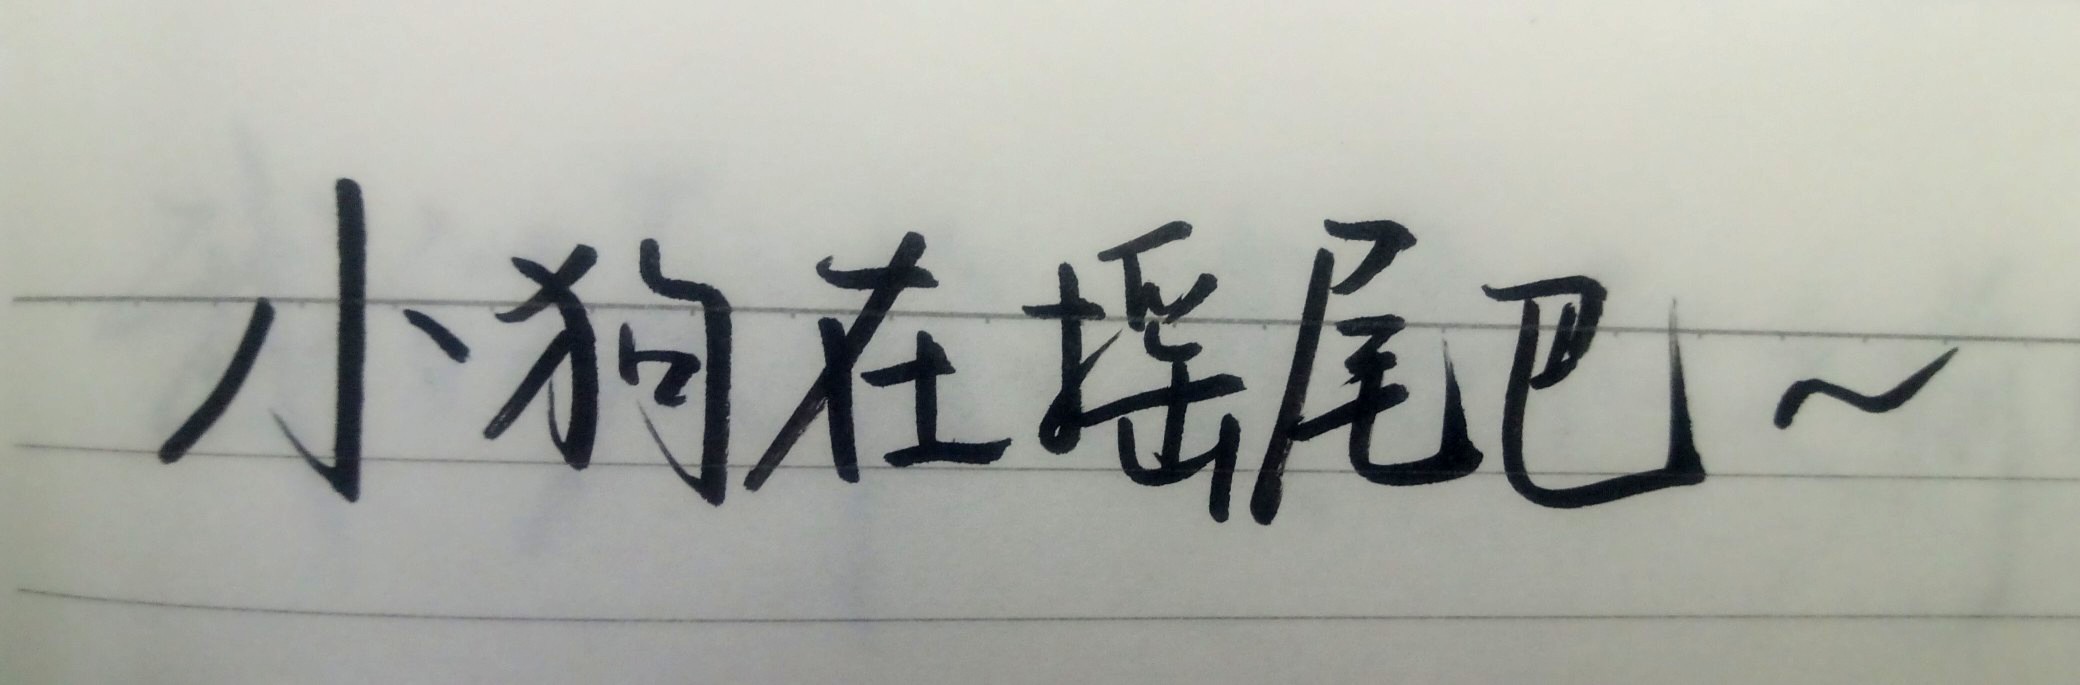 小狗在摇尾巴~